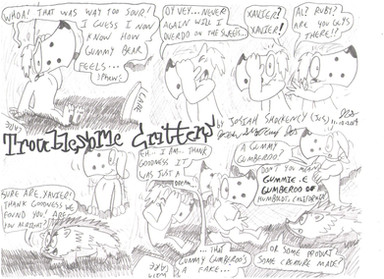 WHOA! THAT WAS WAY TOO SOUR!
I GUESS I NOW
KNOW HOW
GUMMY BEAR
FEELS...
OY VEY... NEVER
AGAIN WILL I
OVERDO ON THE SWEETS...
XAVIER?
XAVIER!
PAL? RUBY?
ARE YOU GUYS
THERE!?
by JOSIAH SHOCKENCY (JCS)
Troublesome Critters
SURE ARE, XAVIER!
THANK GOODNESS WE
FOUND YOU! ARE
YOU ALRIGHT?
THANK
GOODNESS IT
WAS JUST A
DREAM
...THAT
GUMMY GUMBEROO'S
A FAKE...
A GUMMY
GUMBEROO?
DON'T YOU MEAN
GUMMIE.E
GUMBEROO OF
HUMBOLDT, CALIFORNIA?
OR SOME PRODUCT
SOME CREATURE MADE?